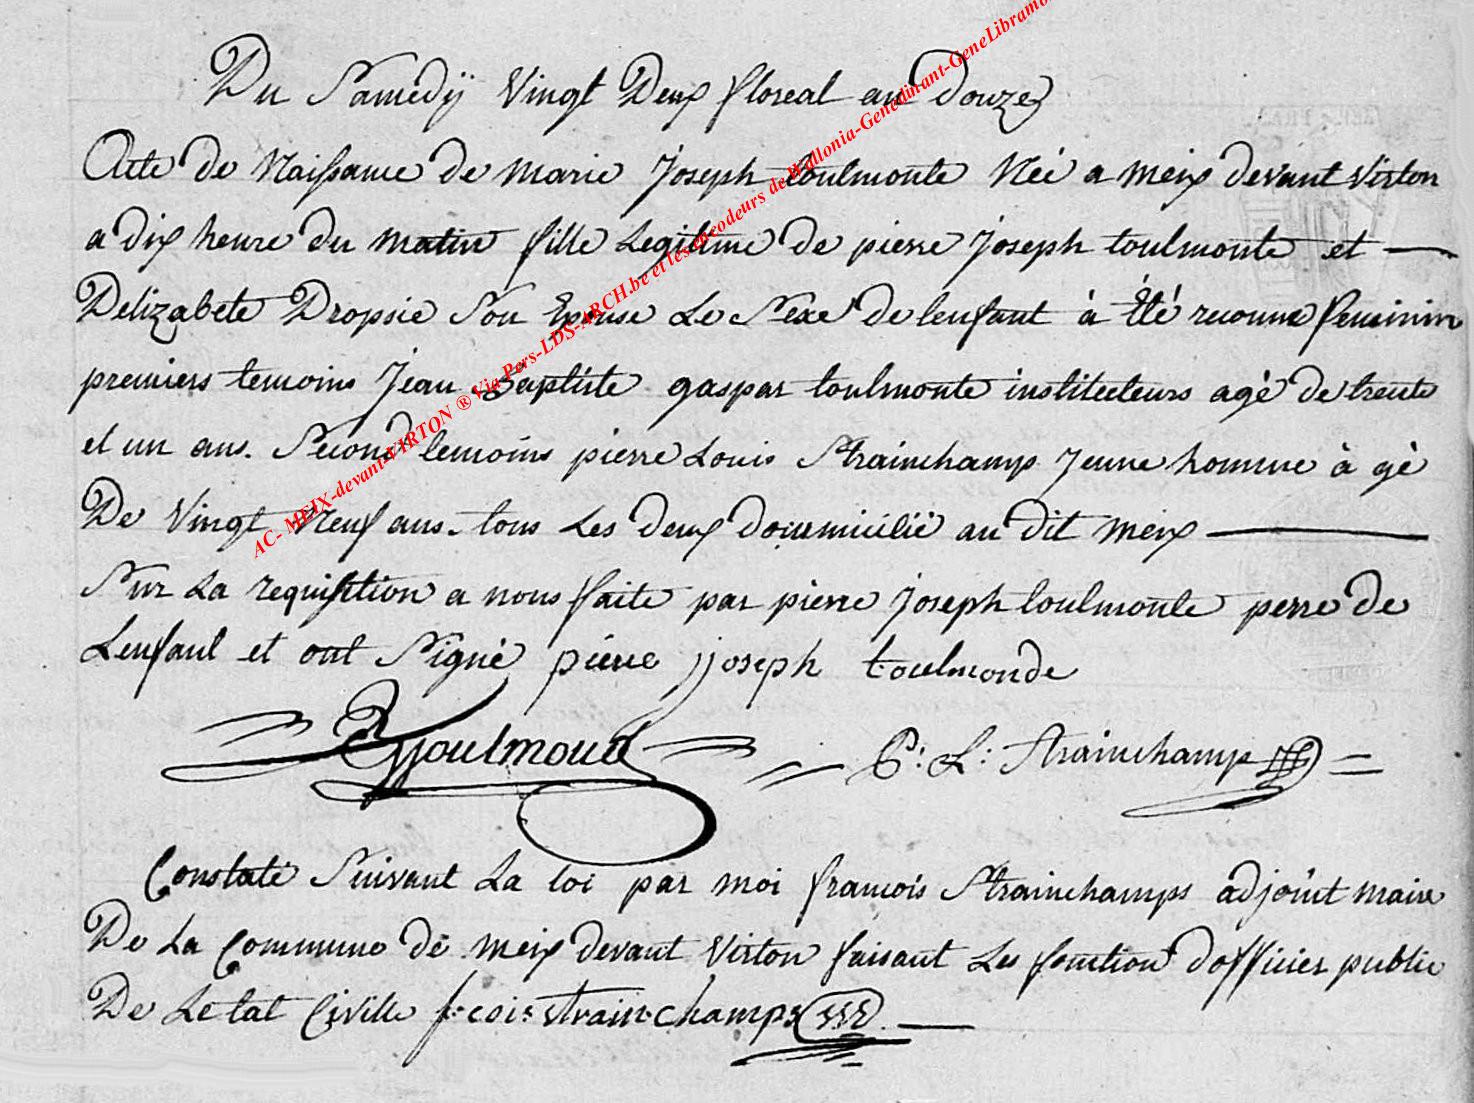 Du Samedÿ Vingt Deux floreal an Douze
Acte de Naissance de marie Joseph toulmonte Née a meix devant Virton
a dix heure du matin fille Legitime de pierre Joseph toulmonte et
Delizabete Dropsie Son Epouse Le Sexe de lenfant à Eté reconnu feminin
premiers temoins Jean Baptiste gaspar toulmonte instituteurs agé de trente
et un ans. Second temoins pierre Louis Strainchamp Jeune homme à gé
De Vingt Neuf ans. tous Les deux domicilié au dit meix
Sur La requisition a nous faite par pierre Joseph toulmonte perre de
Lenfant et ont Signé pierre joseph toulmonde
toulmond P: L: Strainchamp
Constaté Suivant La loi par moi francois Strainchamps adjoint maire
De La Commune de meix devant Virton faisant Les fonction dofficier public
De Letat Civille f:cois strainchamps
AC- MEIX-devant-VIRTON ® Via Pers-LDS-ARCH.be et les encodeurs de Wallonia-Genedinant-GeneLibramo